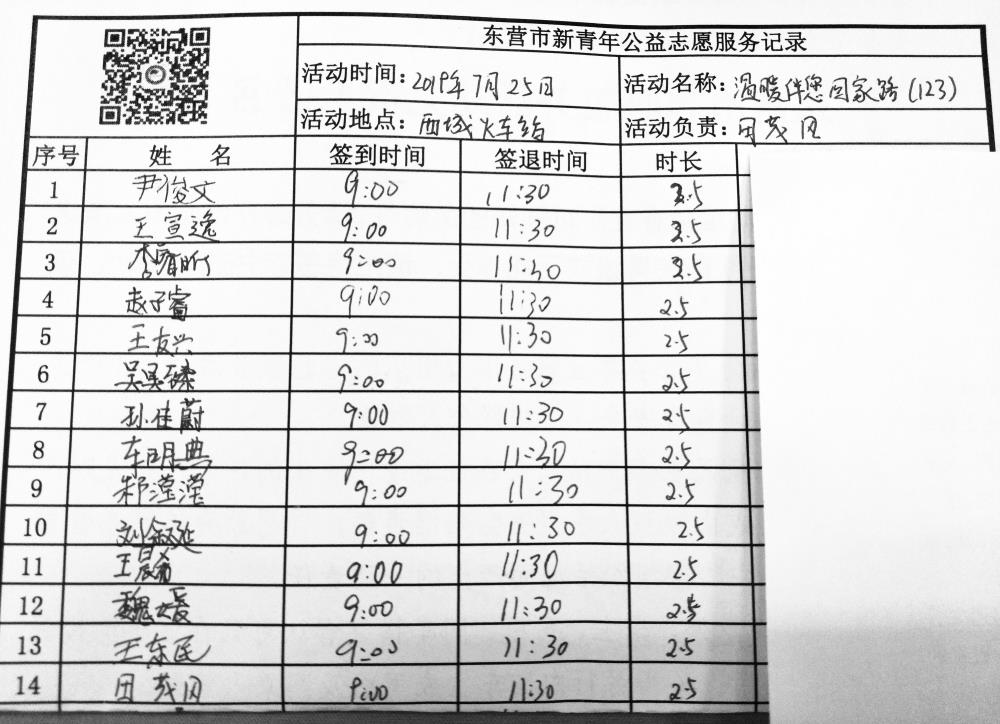 东营市新青年公益志愿服务记录
活动时间：2019年7月25日 活动名称：温暖伴您回家路(123)
活动地点：西城火车站 活动负责：田茂凤
序号 姓 名 签到时间 签退时间 时长
1 尹俊文 9:00 11:30 2.5
2 王宣逸 9:00 11:30 2.5
3 李睿昕 9:00 11:30 2.5
4 赵子睿 9:00 11:30 2.5
5 王友兴 9:00 11:30 2.5
6 吴昊臻 9:00 11:30 2.5
7 孙佳蔚 9:00 11:30 2.5
8 车明典 9:00 11:30 2.5
9 滢滢 9:00 11:30 2.5
10 刘叙延 9:00 11:30 2.5
11 王晨希 9:00 11:30 2.5
12 魏媛 9:00 11:30 2.5
13 王东民 9:00 11:30 2.5
14 田茂凤 9:00 11:30 2.5